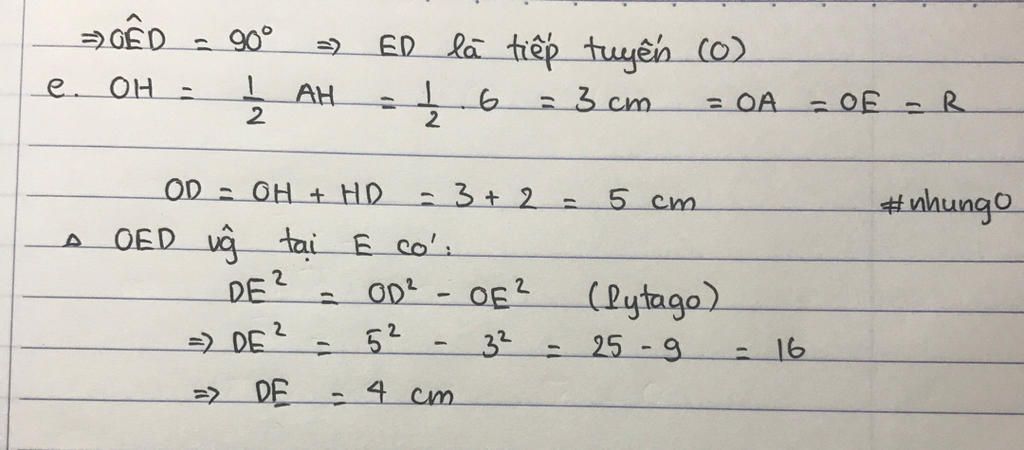 ⇒ OÊD = 90° ⇒ ED là tiếp tuyến (O)
e. OH = 1/2 AH = 1/2 . 6 = 3 cm = OA = OE = R
OD = OH + HD = 3 + 2 = 5 cm #nhung0
△ OED vĝ tại E có:
DE² = OD² - OE² (Pytago)
⇒ DE² = 5² - 3² = 25 - 9 = 16
⇒ DE = 4 cm